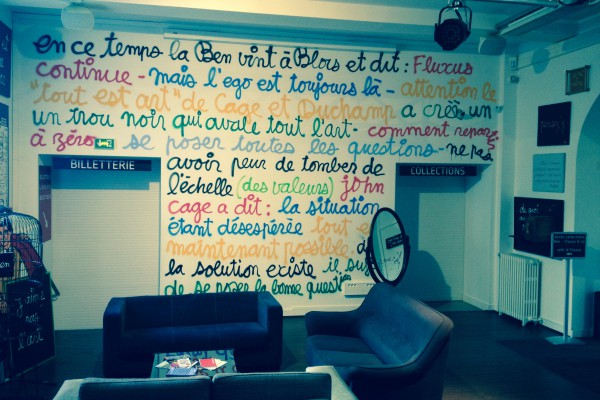 en ce temps la Ben vint à Blois et dit : Fluxus
continue - mais l'ego est toujours là - attention le
"tout est art" de Cage et Duchamp a créé un
un trou noir qui avale tout l'art - comment repartir
à zéro - se poser toutes les questions - ne pas
BILLETTERIE
avoir peur de tomber de
COLLECTIONS
l'échelle (des valeurs) john
cage a dit : la situation
étant désespérée tout est
maintenant possible
la solution existe il su
de se poser la bonne question
j'aime
pas
l'art